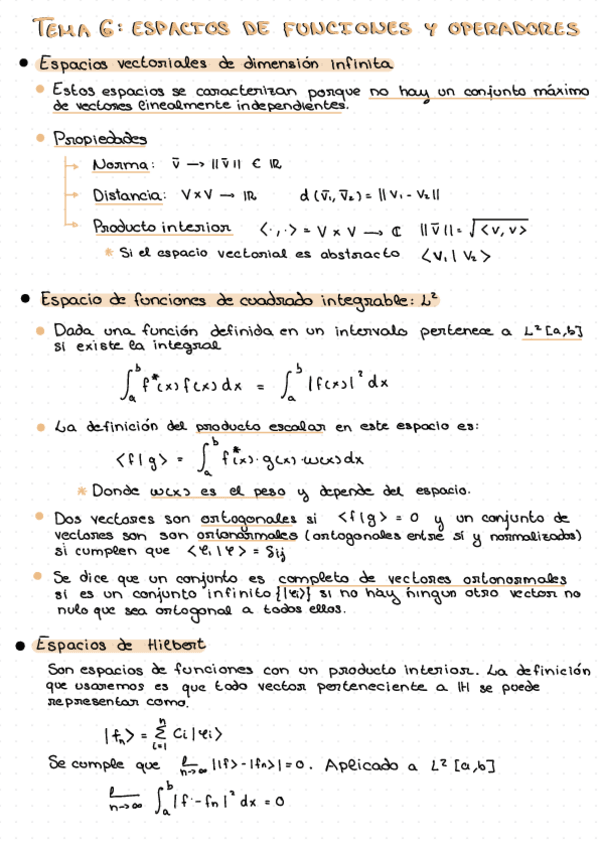 TEMA 6: ESPACIOS DE FUNCIONES Y OPERADORES
• Espacios vectoriales de dimensión infinita
• Estos espacios se caracterizan porque no hay un conjunto máximo
de vectores linealmente independientes.
• Propiedades
Norma: v̄ → ||v̄|| ∈ ℝ
Distancia: V×V → ℝ d(v̄₁, v̄₂) = ||v₁ - v₂||
Producto interior <·,·> = V×V → ℂ ||v̄|| = √<v,v>
* Si el espacio vectorial es abstracto <v₁|v₂>
• Espacio de funciones de cuadrado integrable: L²
• Dada una función definida en un intervalo pertenece a L²[a,b]
si existe la integral
∫ₐᵇ f*(x) f(x) dx = ∫ₐᵇ |f(x)|² dx
• La definición del producto escalar en este espacio es:
<f|g> = ∫ₐᵇ f*(x)·g(x)·w(x) dx
* Donde w(x) es el peso y depende del espacio.
• Dos vectores son ortogonales si <f|g> = 0 y un conjunto de
vectores son son ortonormales (ortogonales entre sí y normalizados)
si cumplen que <φᵢ|φ> = δᵢⱼ
• Se dice que un conjunto es completo de vectores ortonormales
si es un conjunto infinito {|φᵢ>} si no hay ningun otro vector no
nulo que sea ortogonal a todos ellos.
• Espacios de Hilbert
Son espacios de funciones con un producto interior. La definición
que usaremos es que todo vector perteneciente a ℍ se puede
representar como.
|fₙ> = Σᵢ₌₁ⁿ Cᵢ|φᵢ>
Se cumple que ℓ n→∞ ||f> - |fₙ>| = 0. Aplicado a L²[a,b]
ℓ n→∞ ∫ₐᵇ |f - fₙ|² dx = 0